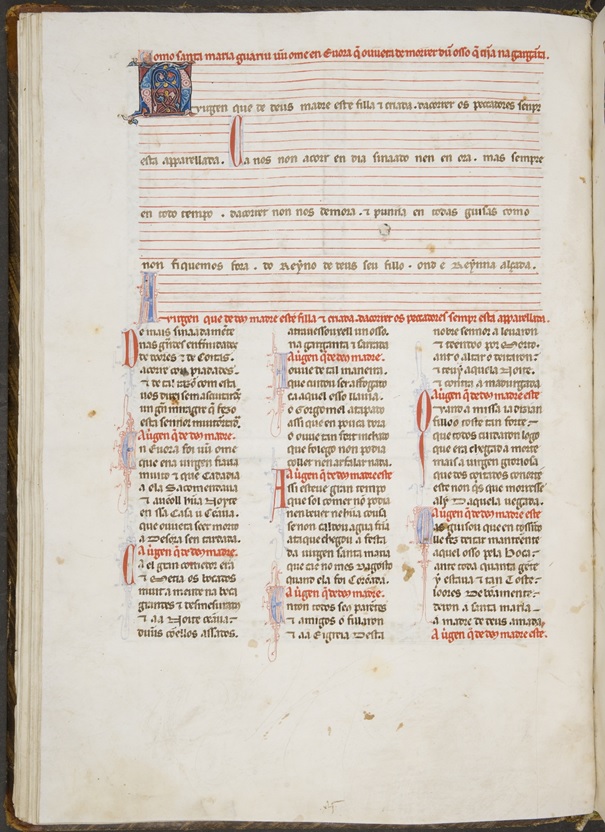 Como santa maria guariu ũu ome en Euora q̃ ouuera de morrer dũ osso q̃ tĩia na gargãta.
A uirgen que de deus madre este filla ⁊ criada. dacorrer os peccadores senpr
esta apparellada. Ca nos non acorr en dia sinaado nen en ora. mas sempre
en todo tempo. dacorrer non nos demora. ⁊ punna en todas guisas como
non fiquemos fora. do Reyno de deus seu fillo. ond e Reynna alçada.
A uirgen que de deus madre este filla ⁊ criada. dacorrer os peccadores sempr esta apparellada.
De mais sinaadamẽte
nas grãdes enfermidade
de doores ⁊ de Coitas.
acorre con piadades.
uos direi se mascuitardes
un gran miragre q̃ fezo
esta sennor
A uirgen q̃ de deus madre.
En Euora foi un ome
que ena uirgen fiaua
muito ⁊ que Cada dia
a ela Sacomendaua
⁊ auẽo ll hũa Noyte
en ssa Casa u Cẽaua.
que ouuera seer morto
a Desora sen tardada.
A uirgen q̃ de deus madre.
Ca el gran comedor era
⁊ Metia os bocados
muit a meude na boca
grandes ⁊ desmesurados
⁊ aa Noite cẽaua.
dũus cõellos assados.
atrauessou xe ll un osso.
na garganta ⁊ sarrada
A uirgen q̃ de deus madre.
ouue de tal maneira.
que cuidou seer affogado
ca aquel osso lauia.
o Gorgomel atapado
assi que en pouca ora
o ouue tan fort inchado
que folego non podia
coller nen ar falar nada.
A uirgen q̃ de deus madre este
Assi esteue gran tempo
que sol comer nõ podia
nen beuer ne hũa cousa
se non caldo ou agua fria
ata que chegou a festa
da uirgen santa maria
que cae no mes Dagosto
quand ela foi Corõada.
A uirgen q̃ de deus madre.
Enton todos seu parẽtes
⁊ amigos o fillaron
⁊ aa Eigreia Desta
nobre sennor a leuaron
⁊ tẽendo o por Morto.
ant o altar o deitaron.
⁊ teuẽ aquela Noite.
⁊ contra a madurgada
A uirgen q̃ de deus madre este
Quando a missa ia dizian
fillou o tosse tan forte.
que todos cuidaron logo
que era chegada a morte
mais a uirgen groriosa
que dos coitados conorte
este non q̃s que morresse
aly Daquela uegada.
A uirgen q̃ de deus madre este
Mas guisou que en tossindo
lle fez deitar mantẽente
aquel osso pela Boca.
ante toda quanta gẽte
y estaua ⁊ tan Toste.
loores De boamente.
deron a santa maria
a madre de deus amada.
A uirgen q̃ de deus madre este.